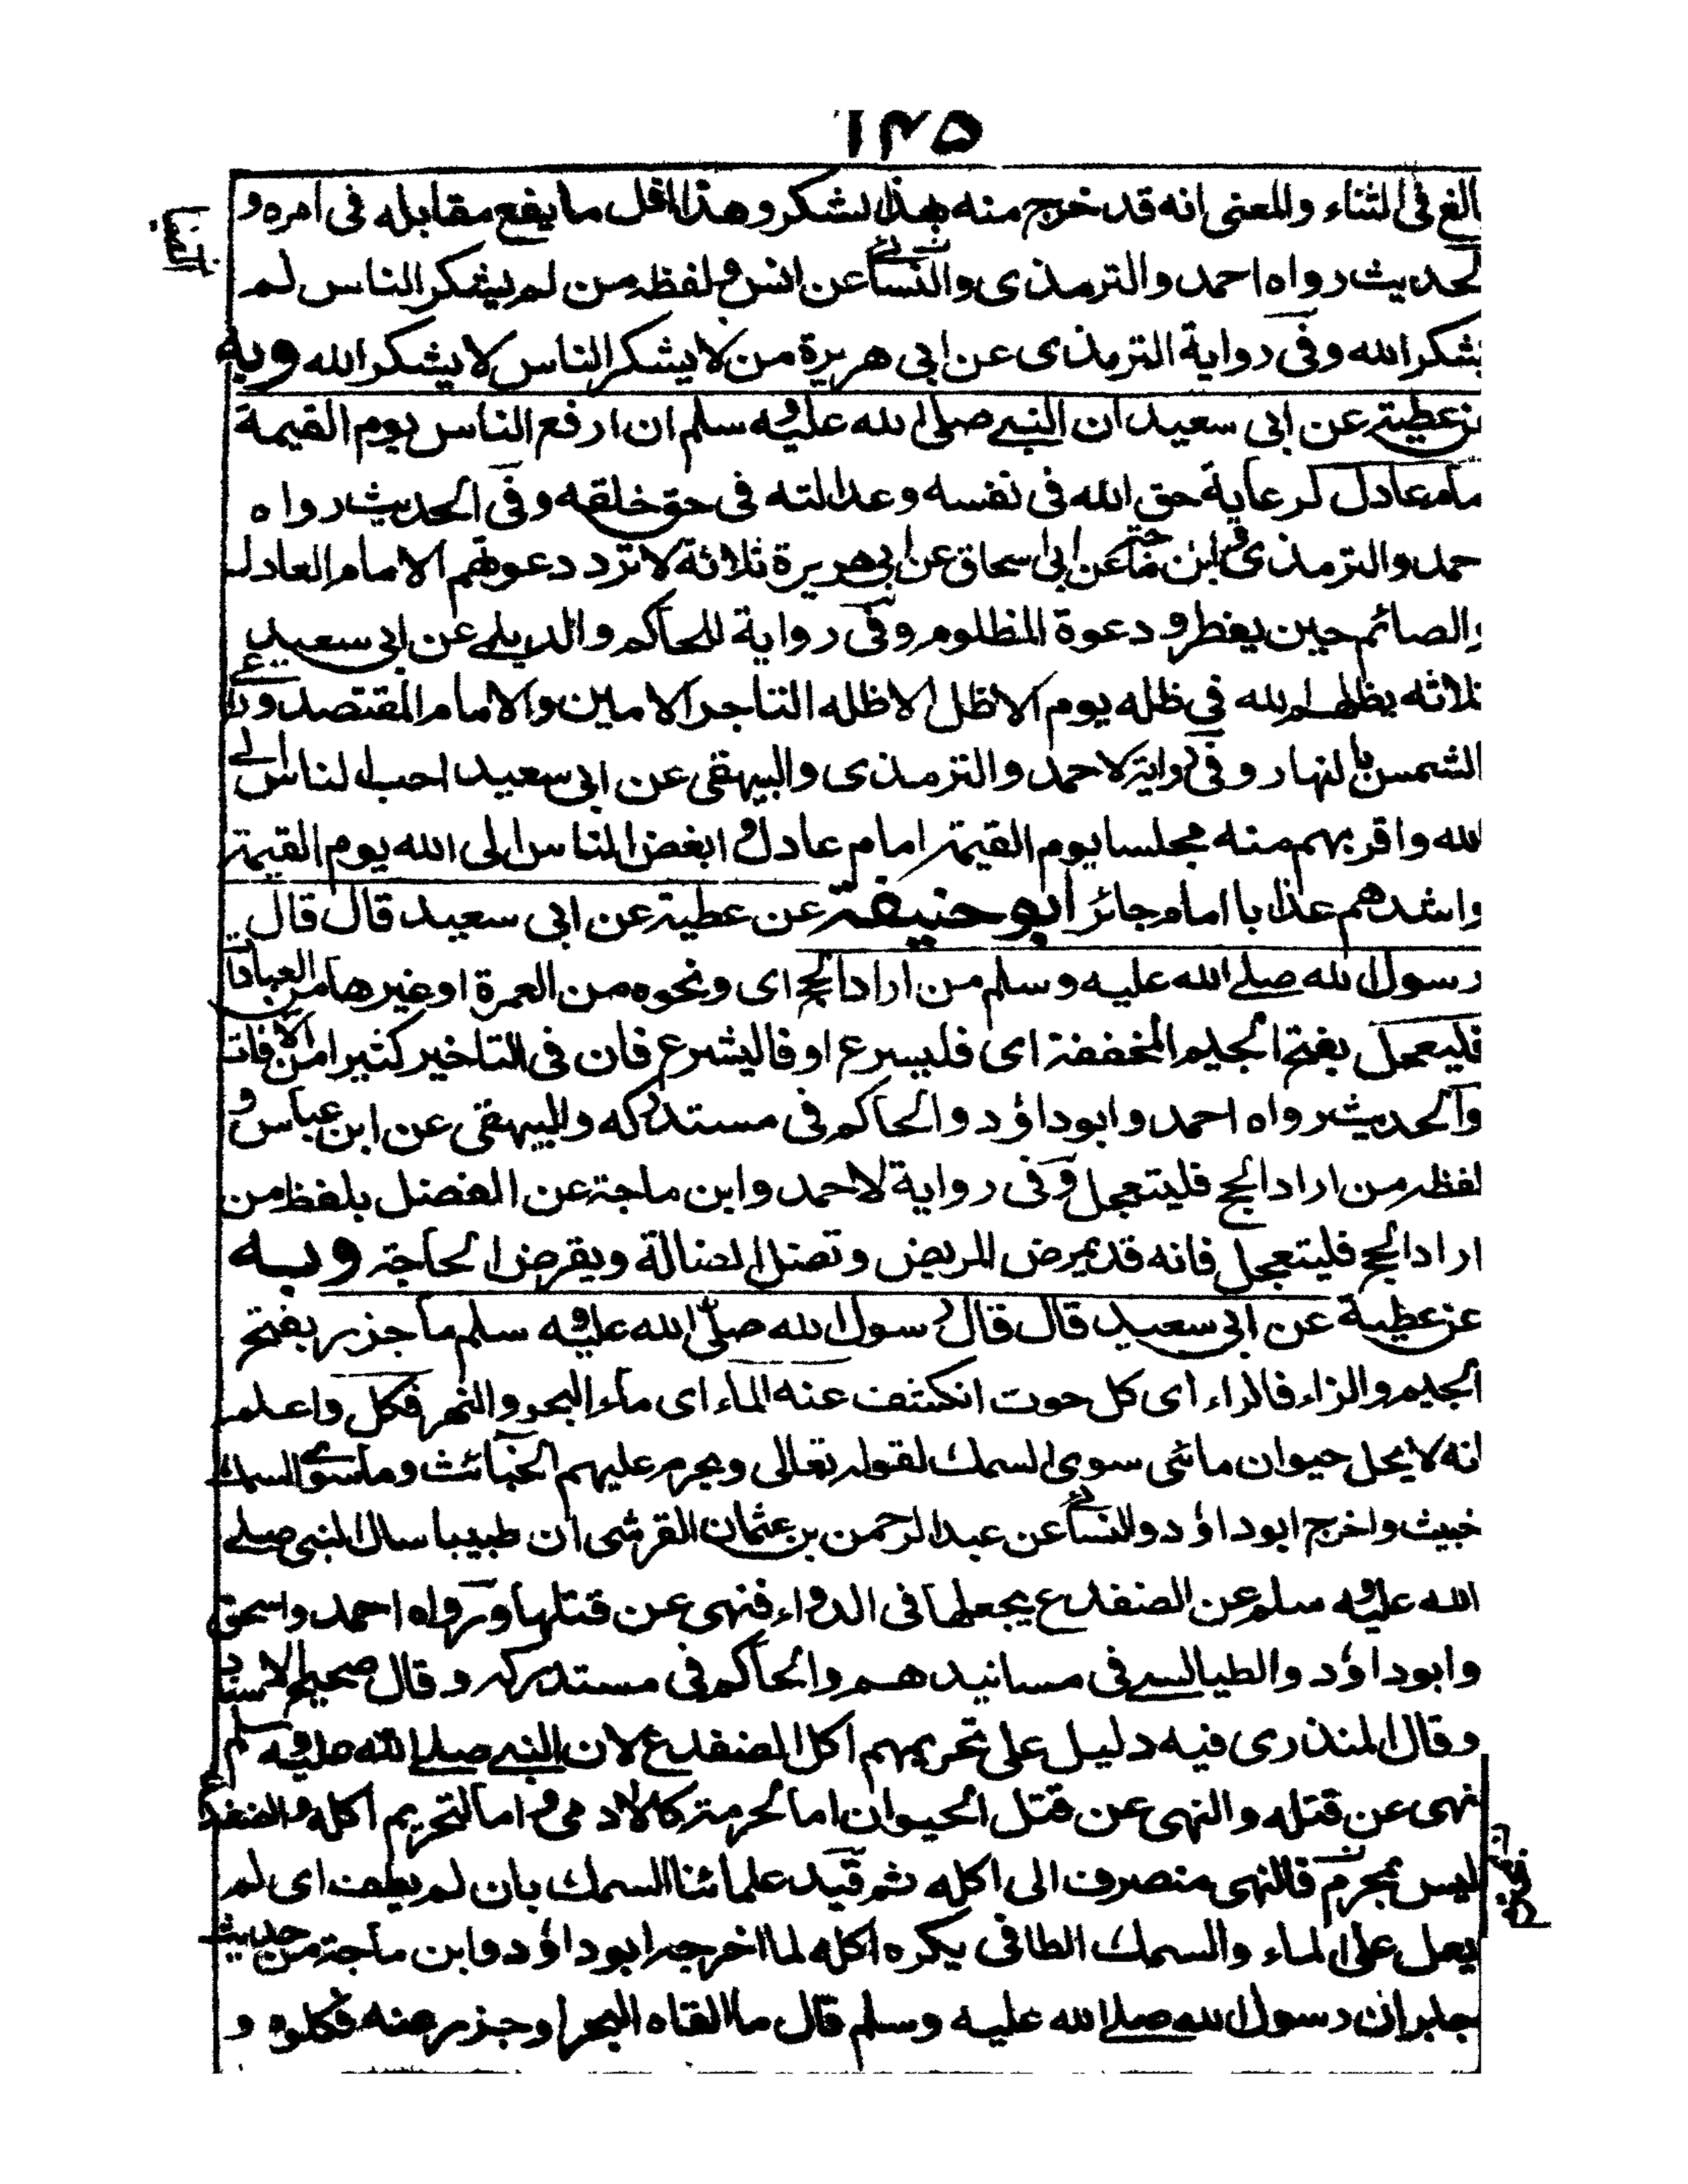 ١٣٥
بالغ فى الثناء والمعنى انه قد خرج منه بهذا الشكر وهذا اقل ما يقع مقابله فى امره و
لحديث رواه احمد والترمذى والنسائے عن انس ولفظه من لم يشكر الناس لم
يشكر الله وفى رواية الترمذى عن ابى هريرة من لا يشكر الناس لا يشكر الله وبه
عن عطية عن ابى سعيد ان النبے صلى الله عليه وسلم ان ارفع الناس يوم القيمة
مام عادل لرعاية حق الله فى نفسه وعدالته فى حق خلقه وفى الحديث رواه
حمد والترمذى وابن ماجة عن ابى اسحاق عن ابى هريرة ثلاثة لا ترد دعوتهم الامام العادل
والصائم حين يفطر ودعوة المظلوم وفى رواية للحاكم والديلمے عن ابى سعيد
ثلاثه يظلهم الله فى ظله يوم لا ظل الا ظله التاجر الامين والامام المقتصد وراعے
الشمس بالنهار وفى رواية لاحمد والترمذى والبيهقى عن ابى سعيد احب الناس الے
لله واقربهم منه مجلسا يوم القيمة امام عادل وابغض الناس الى الله يوم القيمة
واشدهم عذابا امام جائر ابو حنيفة عن عطية عن ابى سعيد قال قال
رسول الله صلے الله عليه وسلم من اراد الحج اى ونحوه من العمرة او غيرها من العبادات
فليعجل بفتح الجيم المخففة اى فليسرع او فاليشرع فان فى التاخير كثيرا من الافات
والحديث رواه احمد وابو داؤد والحاكم فى مستدركه والبيهقى عن ابن عباس و
لفظه من اراد الحج فليتعجل وفى رواية لاحمد وابن ماجة عن الفضل بلفظ من
اراد الحج فليتعجل فانه قد يمرض المريض وتضل الضالة ويقرض الحاجة وبه
عن عطية عن ابى سعيد قال قال رسول الله صلى الله عليه وسلم ما جزر بفتح
الجيم والزاء فالراء اى كل حوت انكشف عنه الماء اى ماء البحر والنهر فكل واعلم
انه لا يحل حيوان مائى سوى السمك لقوله تعالى ويحرم عليهم الخبائث وما سوے السمك
خبيث واخرج ابو داؤد والنسائے عن عبد الرحمن بن عثمان القرشى ان طبيبا سال النبى صلے
الله عليه وسلم عن الضفدع يجعلها فى الدواء فنهى عن قتلها ورواه احمد واسحق
وابو داؤد والطيالسے فى مسانيدهم والحاكم فى مستدركه وقال صحيح الاسناد
وقال المنذرى فيه دليل على تحريمهم اكل الضفدع لان النبے صلے الله عليه وسلم
نهى عن قتله والنهى عن قتل الحيوان اما لحرمته كالادمى واما لتحريم اكله والضفدع
ليس بمحرم فالنهى منصرف الى اكله ثم قيد علمائنا السمك بان لم يطف اى لم
يعل على الماء والسمك الطافى يكره اكله لما اخرجه ابو داؤد وابن ماجة من حديث
جابر ان رسول الله صلے الله عليه وسلم قال ما القاه البحر او جزر عنه فكلوه و